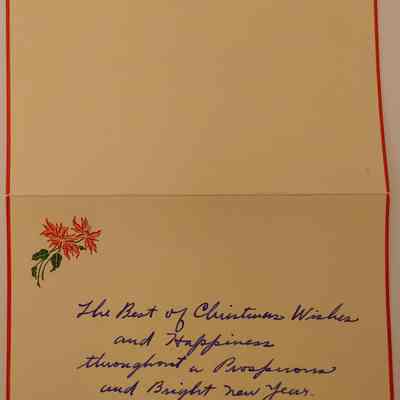 The Best of Christmas Wishes
and Happiness
throughout a Prosperous
and Bright New Year.